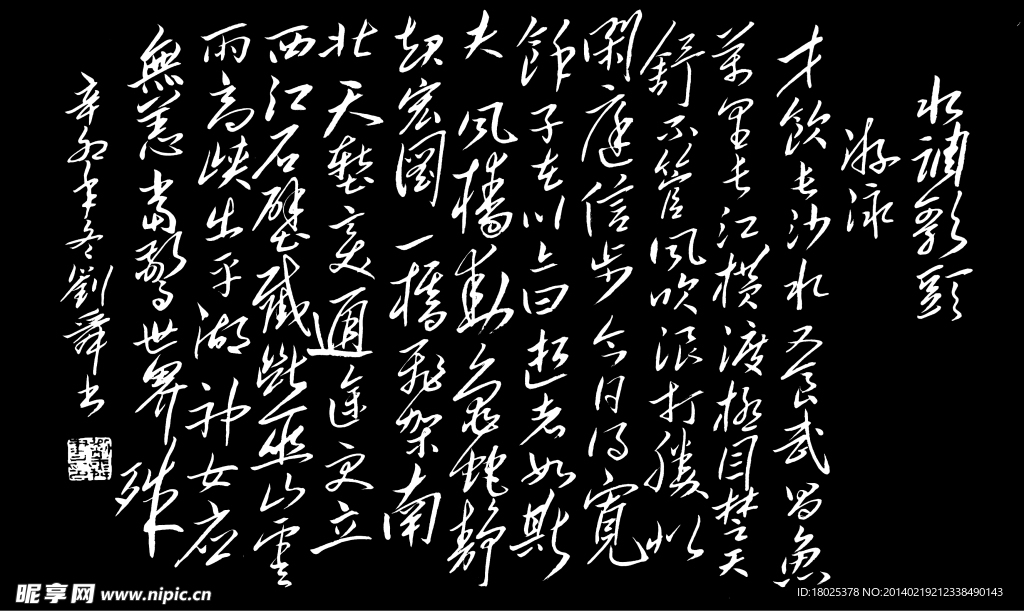 水調歌頭
游泳
才飲長沙水又食武昌魚
萬里長江横渡極目楚天
舒不管風吹浪打勝似
閑庭信步今日得寬
餘子在川上曰逝者如斯
夫風檣動龜蛇靜
起宏圖一橋飛架南
北天塹變通途更立
西江石壁截斷巫山雲
雨高峽出平湖神女應
無恙當驚世界殊
辛卯年冬劉舜書
昵享网 www.nipic.cn
ID:18025378 NO:20140219212338490143